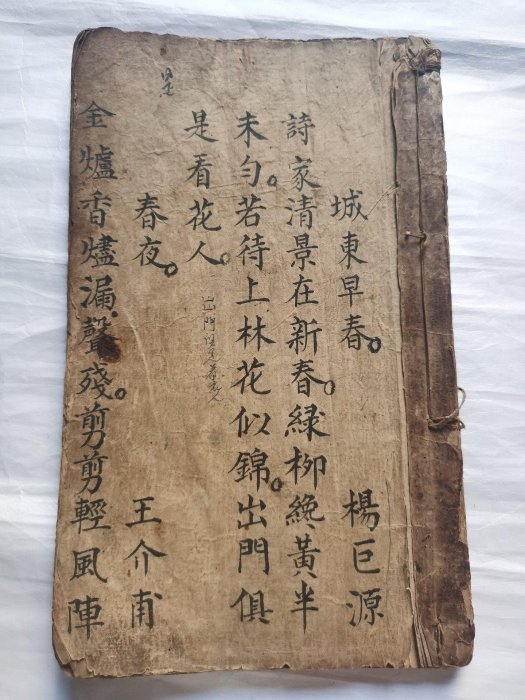 城東早春。 楊巨源
詩家清景在新春。綠柳纔黃半
未勻。若待上林花似錦。出門俱
是看花人。
出門俱是看花人
春夜。 王介甫
是
金爐香燼漏聲殘。剪剪輕風陣